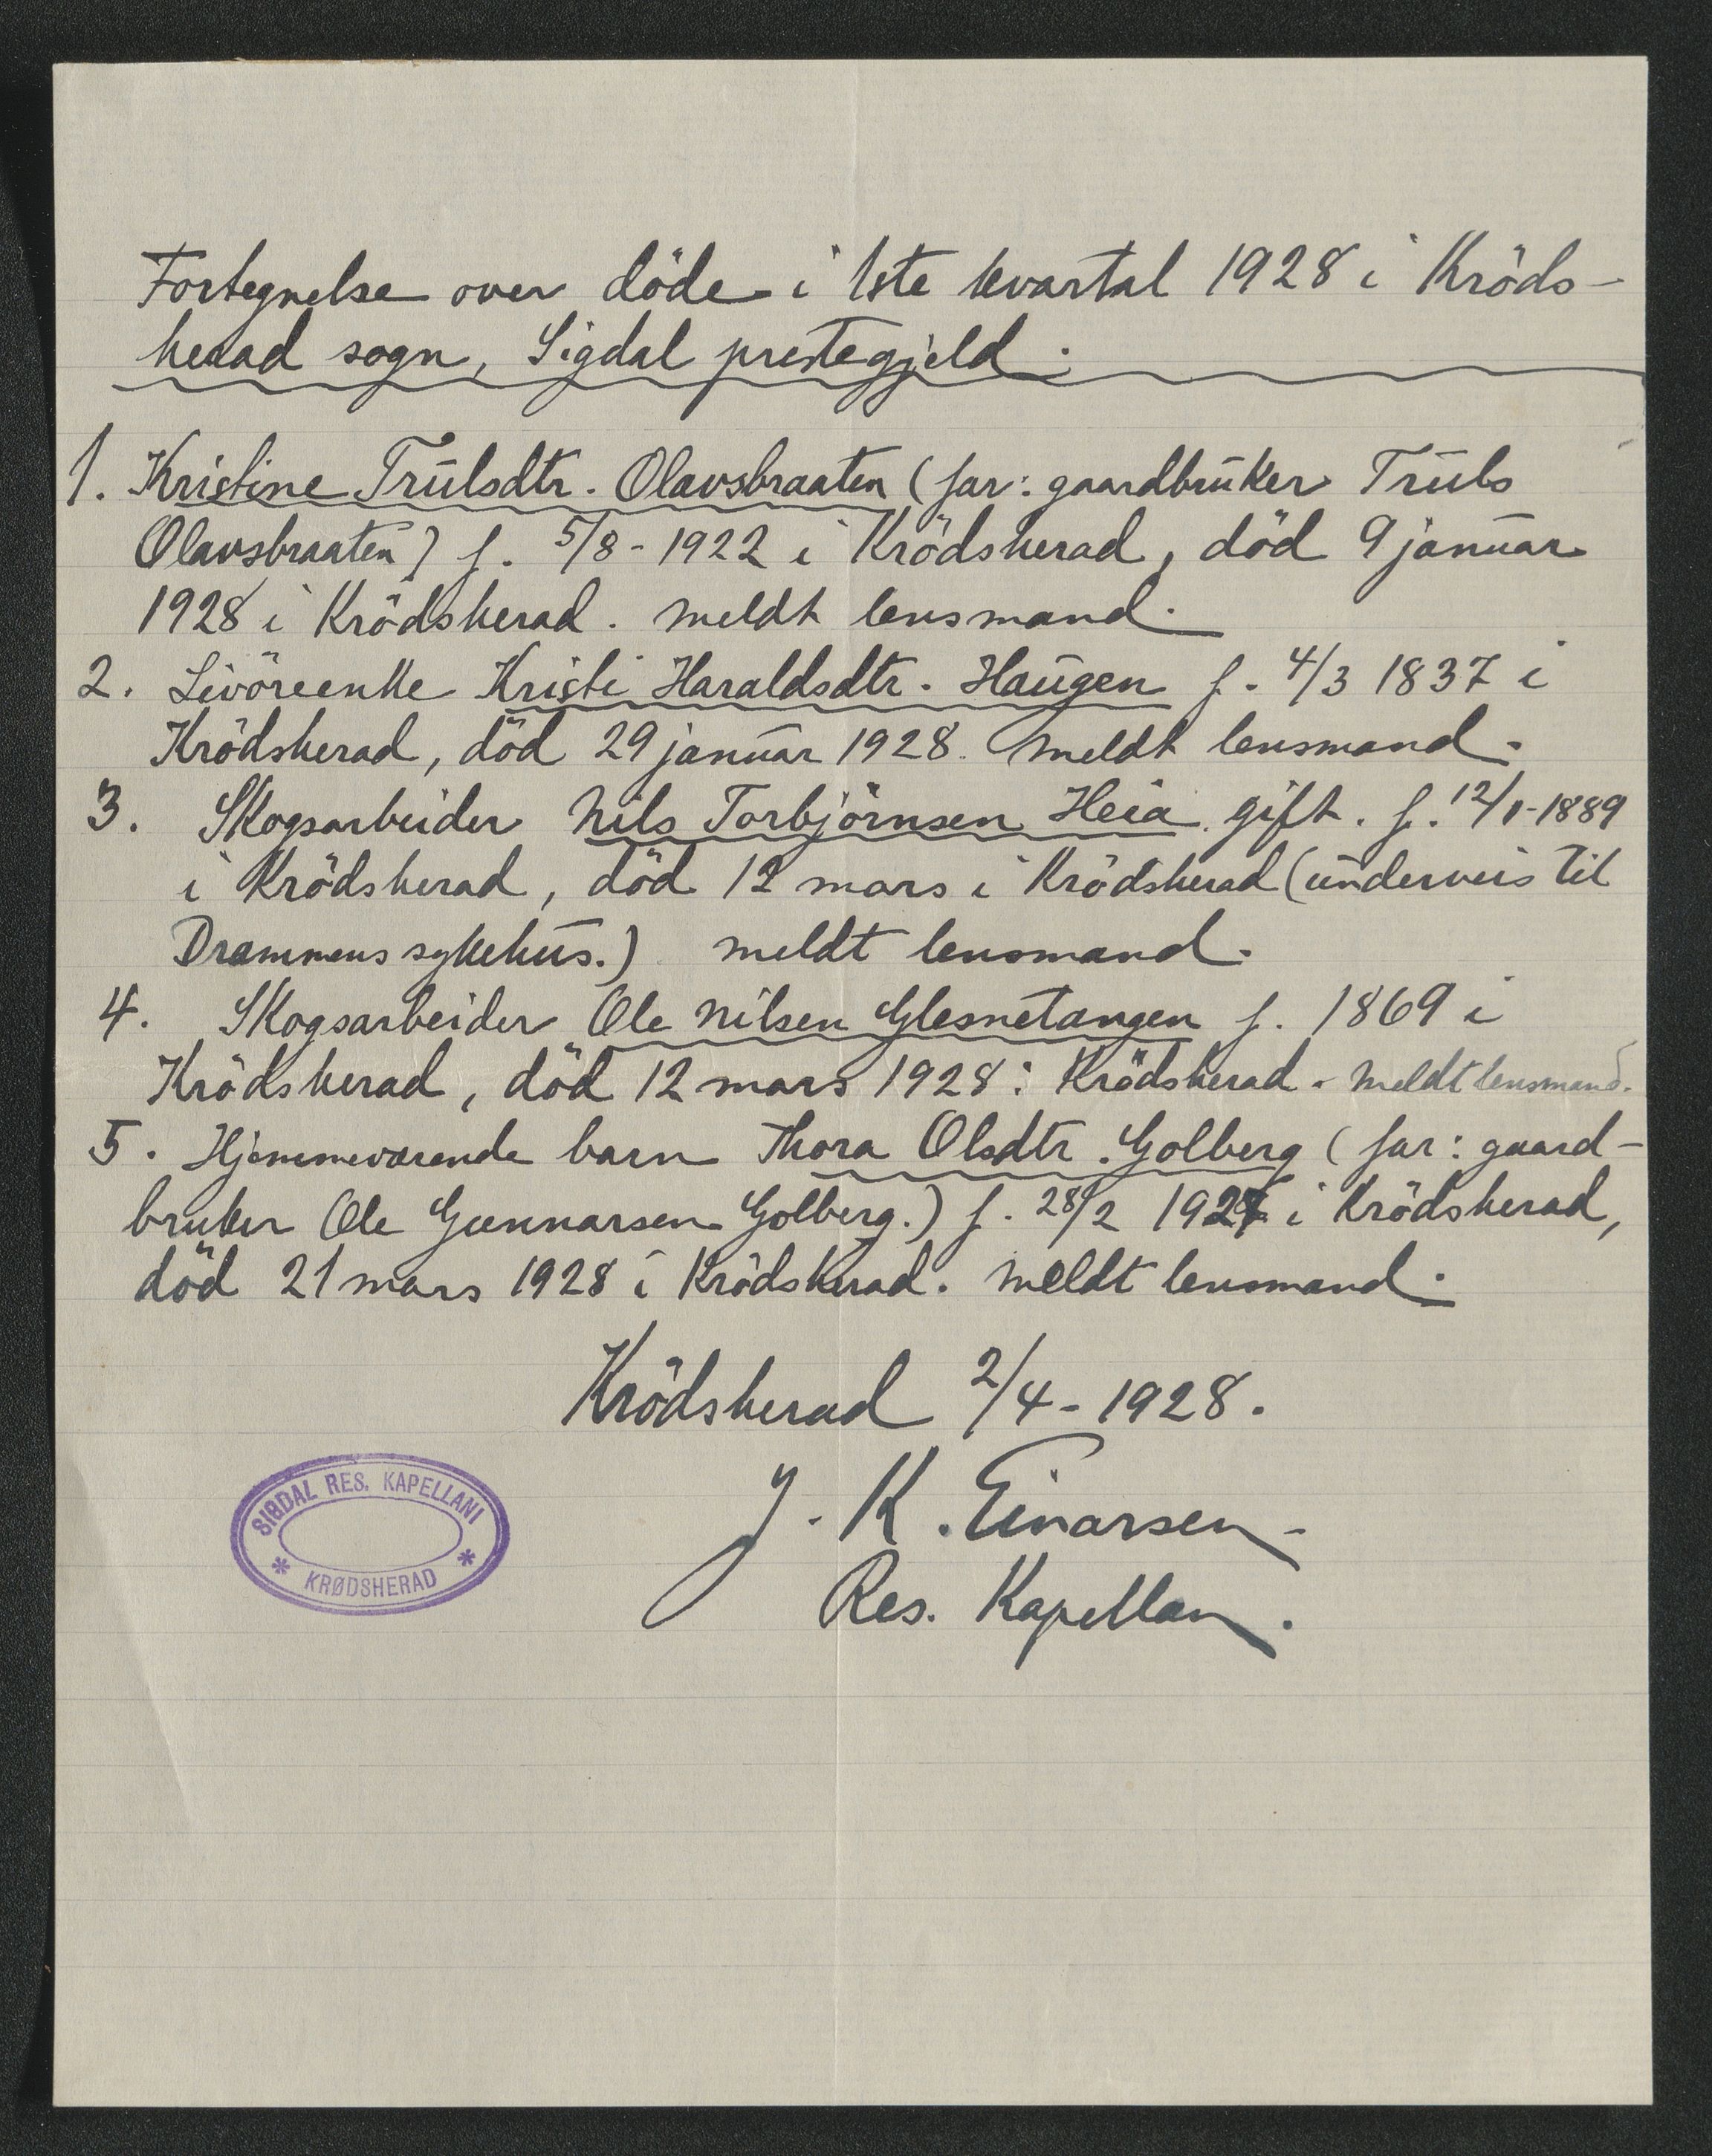 Fortegnelse over döde i 1ste kvartal 1928 i Kröds-
herad sogn, Sigdal prestegjeld.
1. Kristine Trulsdtr. Olavsbraaten (far: gaardbruker Truls
Olavsbraaten) f. 5/8-1922 i Krödsherad, död 9 januar
1928 i Krödsherad. meldt lensmand.
2. Livöreenke Kristi Haraldsdtr. Haugen f. 4/3 1837 i
Krödsherad, död 29 januar 1928. meldt lensmand.
3. Skogsarbeider Nils Torbjörnsen Heia gift. f. 12/1-1889
i Krödsherad, död 12 mars i Krödsherad (underveis til
Drammens sykehus.) meldt lensmand.
4. Skogsarbeider Ole Nilsen Glesnetangen f. 1869 i
Krödsherad, död 12 mars 1928 i Krödsherad - meldt lensmand.
5. Hjemmeværende barn Thora Olsdtr. Golberg (far: gaard-
bruker Ole Gunnarsen Golberg.) f. 28/2 1927 i Krödsherad,
död 21 mars 1928 i Krödsherad. meldt lensmand.
Krödsherad 2/4-1928.
J. K. Einarsen
Res. Kapellan.
SIGDAL RES. KAPELLANI
* KRØDSHERAD *